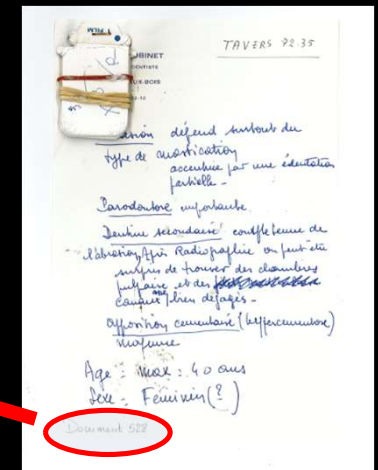 TAVERS 72.35
1 FILM
UBINET
DENTISTE
UX-BOIS
défend surtout du
type de mastication
accentuée par une édentation
partielle -
Parodontose importante
Dentine secondaire complètement
l'abrasion Après Radiographie on peut être
surpris de trouver des chambres
pulpaire et des
canaux bien dégagés -
apposition cementaire (hypercementose)
majeure
Age : max : 40 ans
Sexe - Féminin (?)
Document 528